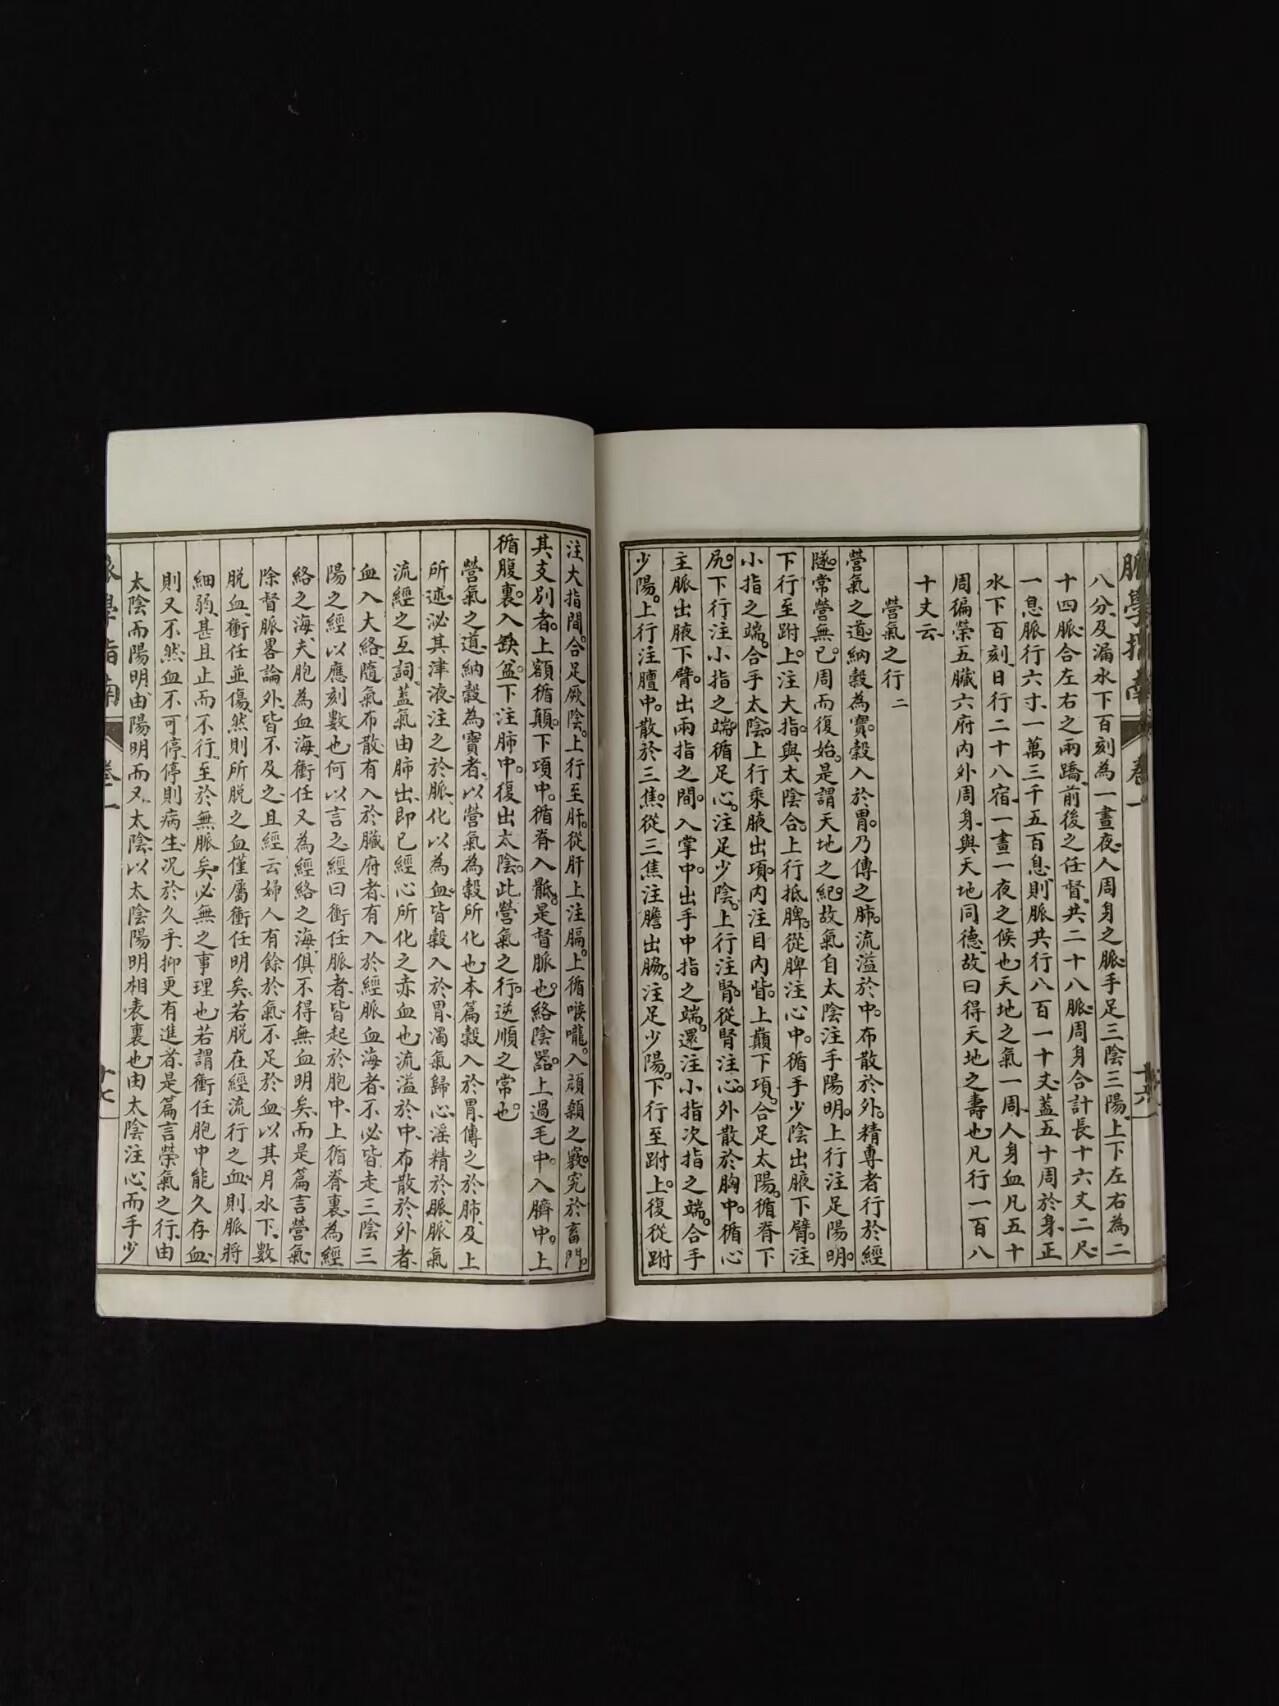 脈學指南 卷一 十六
八分、及漏水下百刻為一晝夜、人周身之脈、手足三陰三陽、上下左右為二
十四脈、合左右之兩蹻、前後之任督、共二十八脈、周身合計長十六丈二尺、
一息脈行六寸、一萬三千五百息、則脈共行八百一十丈、蓋五十周於身、正
水下百刻、日行二十八宿、一晝一夜之候也、天地之氣一周、人身血凡五十
周徧榮五臟六府、內外周身、與天地同德、故曰得天地之壽也、凡行一百八
十丈云、
營氣之行 二
營氣之道、納穀為寶。穀入於胃、乃傳之肺、流溢於中、布散於外。精專者行於經
隧、常營無已、周而復始、是謂天地之紀。故氣自太陰注手陽明。上行注足陽明。
下行至跗上。注大指。與太陰合。上行抵脾。從脾注心中。循手少陰出腋下臂。注
小指之端。合手太陰。上行乘腋出䪼內注目內眥。上巔下項。合足太陽。循脊下
尻。下行注小指之端。循足心。注足少陰。上行注腎。從腎注心。外散於胸中。循心
主脈出腋下臂。出兩指之間。入掌中。出手中指之端。還注小指次指之端。合手
少陽。上行注膻中。散於三焦。從三焦注膽出脇。注足少陽。下行至跗上。復從跗
注大指間。合足厥陰。上行至肝。從肝上注膈。上循喉嚨。入頏顙之竅。究於畜門。
其支別者。上額循顛。下項中。循脊入骶。是督脈也。絡陰器。上過毛中。入臍中。上
循腹裏。入缺盆。下注肺中。復出太陰。此營氣之行。逆順之常也。
營氣之道、納穀為寶者、以營氣為穀所化也、本篇穀入於胃、傳之於肺、及上
所述泌其津液、注之於脈、化以為血、皆穀入於胃、濁氣歸心、淫精於脈、脈氣
流經之互詞、蓋氣由肺出、即已經心所化之赤血也、流溢於中、布散於外者、
血入大絡、隨氣布散、有入於臟府者、有入於經脈血海者、不必皆走三陰三
陽之經、以應刻數也、何以言之、經曰、衝任脈者、皆起於胞中、上循脊裏、為經
絡之海、夫胞為血海、衝任又為經絡之海、俱不得無血明矣、而是篇言營氣、
除督脈畧論外、皆不及之、且經云、婦人有餘於氣、不足於血、以其月水下、數
脫血、衝任並傷、然則所脫之血、僅屬衝任明矣、若脫在經流行之血、則脈將
細弱、甚且止而不行、至於無脈矣、必無之事理也、若謂衝任胞中、能久存血、
則又不然、血不可停、停則病生、況於久乎、抑更有進者、是篇言榮氣之行、由
太陰而陽明、由陽明而又太陰、以太陰陽明相表裏也、由太陰注心、而手少
脈學指南 卷一 十七